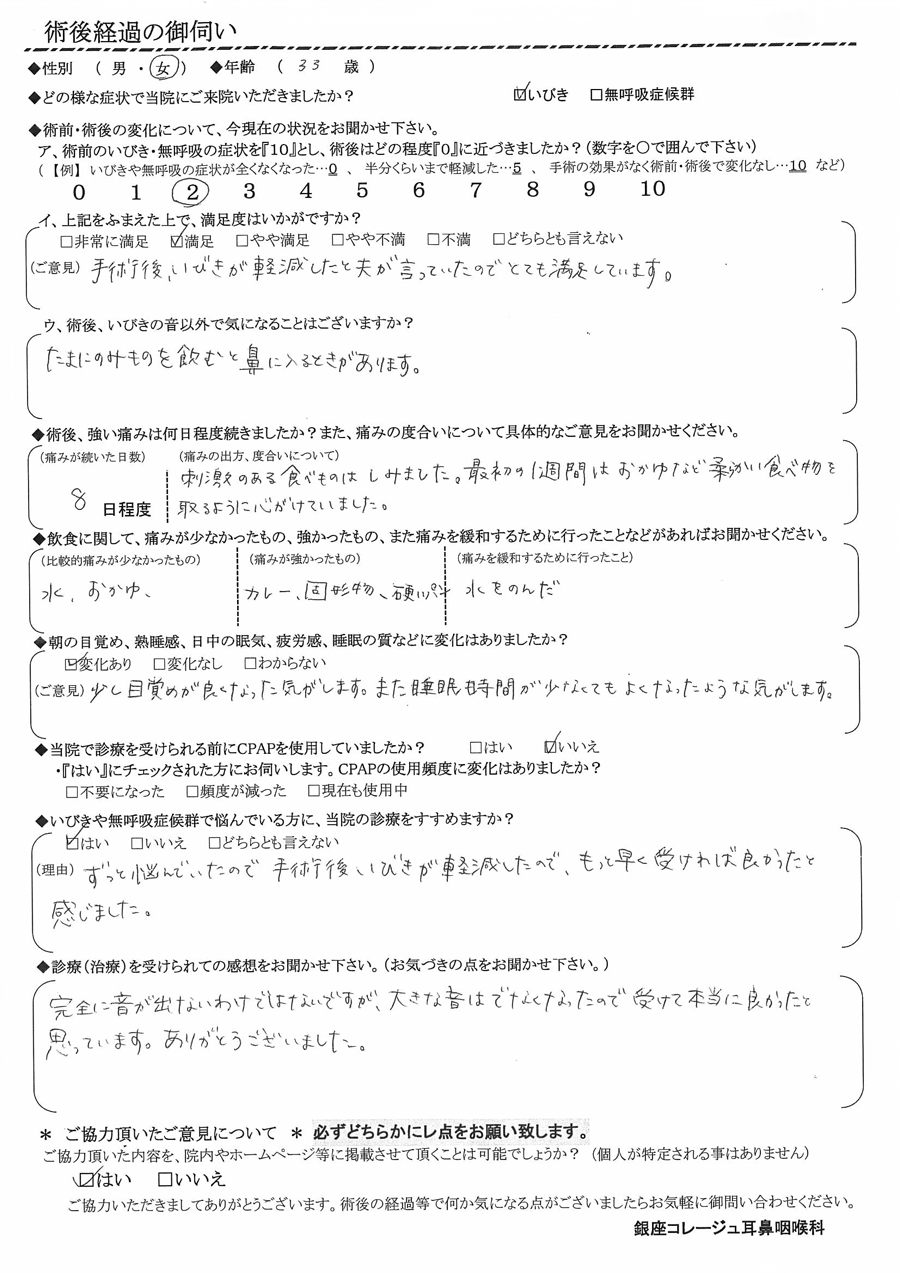 術後経過の御伺い
◆性別 ( 男 ・ 女 ) ◆年齢 ( 33 歳 )
◆どの様な症状で当院にご来院いただきましたか? ☑いびき □無呼吸症候群
◆術前・術後の変化について、今現在の状況をお聞かせ下さい。
ア、術前のいびき・無呼吸の症状を『10』とし、術後はどの程度『0』に近づきましたか?(数字を〇で囲んで下さい)
(【例】 いびきや無呼吸の症状が全くなくなった…0 、 半分くらいまで軽減した…5 、 手術の効果がなく術前・術後で変化なし…10 など)
0 1 2 3 4 5 6 7 8 9 10
イ、上記をふまえた上で、満足度はいかがですか?
□非常に満足 ☑満足 □やや満足 □やや不満 □不満 □どちらとも言えない
(ご意見) 手術後、いびきが軽減したと夫が言っていたのでとても満足しています。
ウ、術後、いびきの音以外で気になることはございますか?
たまにのみものを飲むと鼻に入るときがあります。
◆術後、強い痛みは何日程度続きましたか?また、痛みの度合いについて具体的なご意見をお聞かせください。
(痛みが続いた日数) (痛みの出方、度合いについて)
刺激のある食べものは しみました。最初の1週間は おかゆなど柔かい食べ物を
8 日程度 取るように心がけていました。
◆飲食に関して、痛みが少なかったもの、強かったもの、また痛みを緩和するために行ったことなどがあればお聞かせください。
(比較的痛みが少なかったもの) (痛みが強かったもの) (痛みを緩和するために行ったこと)
水、おかゆ、 カレー、固形物、硬いパン 水をのんだ
◆朝の目覚め、熟睡感、日中の眠気、疲労感、睡眠の質などに変化はありましたか?
☑変化あり □変化なし □わからない
(ご意見) 少し目覚めが良くなった気がします。また睡眠時間が少なくてもよくなったような気がします。
◆当院で診療を受けられる前にCPAPを使用していましたか? □はい ☑いいえ
・『はい』にチェックされた方にお伺いします。CPAPの使用頻度に変化はありましたか?
□不要になった □頻度が減った □現在も使用中
◆いびきや無呼吸症候群で悩んでいる方に、当院の診療をすすめますか?
☑はい □いいえ □どちらとも言えない
(理由) ずっと悩んでいたので 手術後いびきが軽減したので、もっと早く受ければ良かったと
感じました。
◆診療(治療)を受けられての感想をお聞かせ下さい。(お気づきの点をお聞かせ下さい。)
完全に音が出ないわけではないですが、大きな音はでなくなったので受けて本当に良かったと
思っています。ありがとうございました。
＊ ご協力頂いたご意見について ＊ 必ずどちらかにレ点をお願い致します。
ご協力頂いた内容を、院内やホームページ等に掲載させて頂くことは可能でしょうか? (個人が特定される事はありません)
☑はい □いいえ
ご協力いただきましてありがとうございます。術後の経過等で何か気になる点がございましたらお気軽に御問い合わせください。
銀座コレージュ耳鼻咽喉科